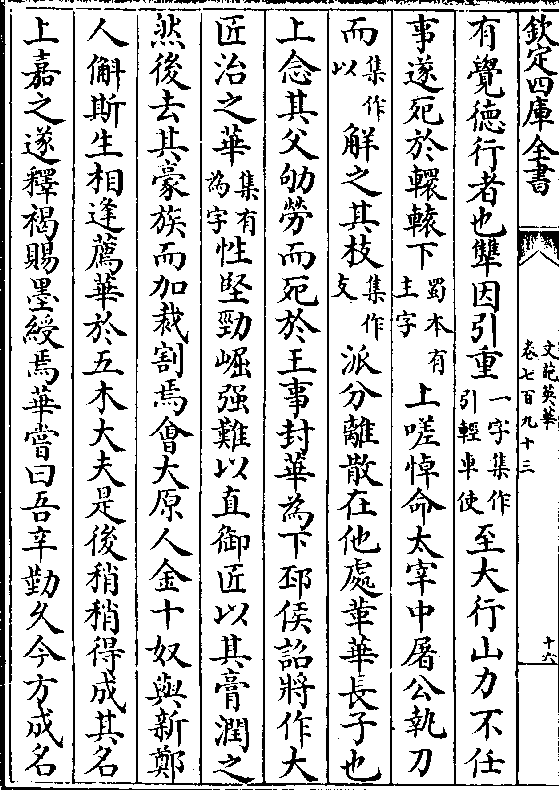 欽定四庫全書
文苑英華
卷七百九十三
十六
有覺德行者也犨因引重一字集作引輕車使至大行山力不任
事遂死於轘轅下蜀本有土字上嗟悼命太宰中屠公執刀
而集作以解之其枝集作支派分離散在他處革華長子也
上念其父劬勞而死於王事封華為下邳侯詔將作大
匠治之華集有為字性堅勁崛强難以直御匠以其膏潤之
然後去其豪族而加裁割焉會大原人金十奴與新鄭
人斛斯生相逢薦華於五木大夫是後稍稍得成其名
上嘉之遂釋褐賜墨綬焉華嘗曰吾辛勤久今方成名